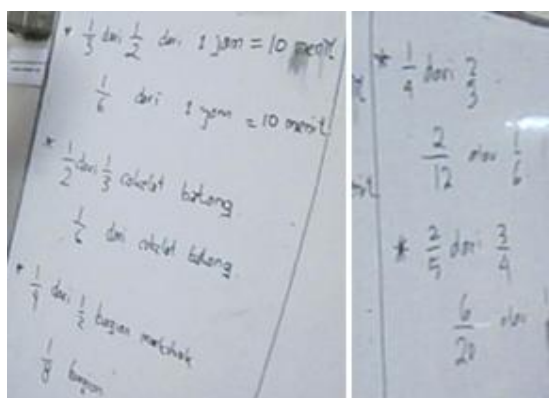 * 1/3 dari 1/2 dari 1 jam = 10 menit
1/6 dari 1 jam = 10 menit
* 1/2 dari 1/3 cokelat batang
1/6 dari cokelat batang
* 1/4 dari 1/2 bagian
1/8 bagian
* 1/4 dari 2/3
2/12 atau 1/6
* 2/5 dari 3/4
6/20 atau